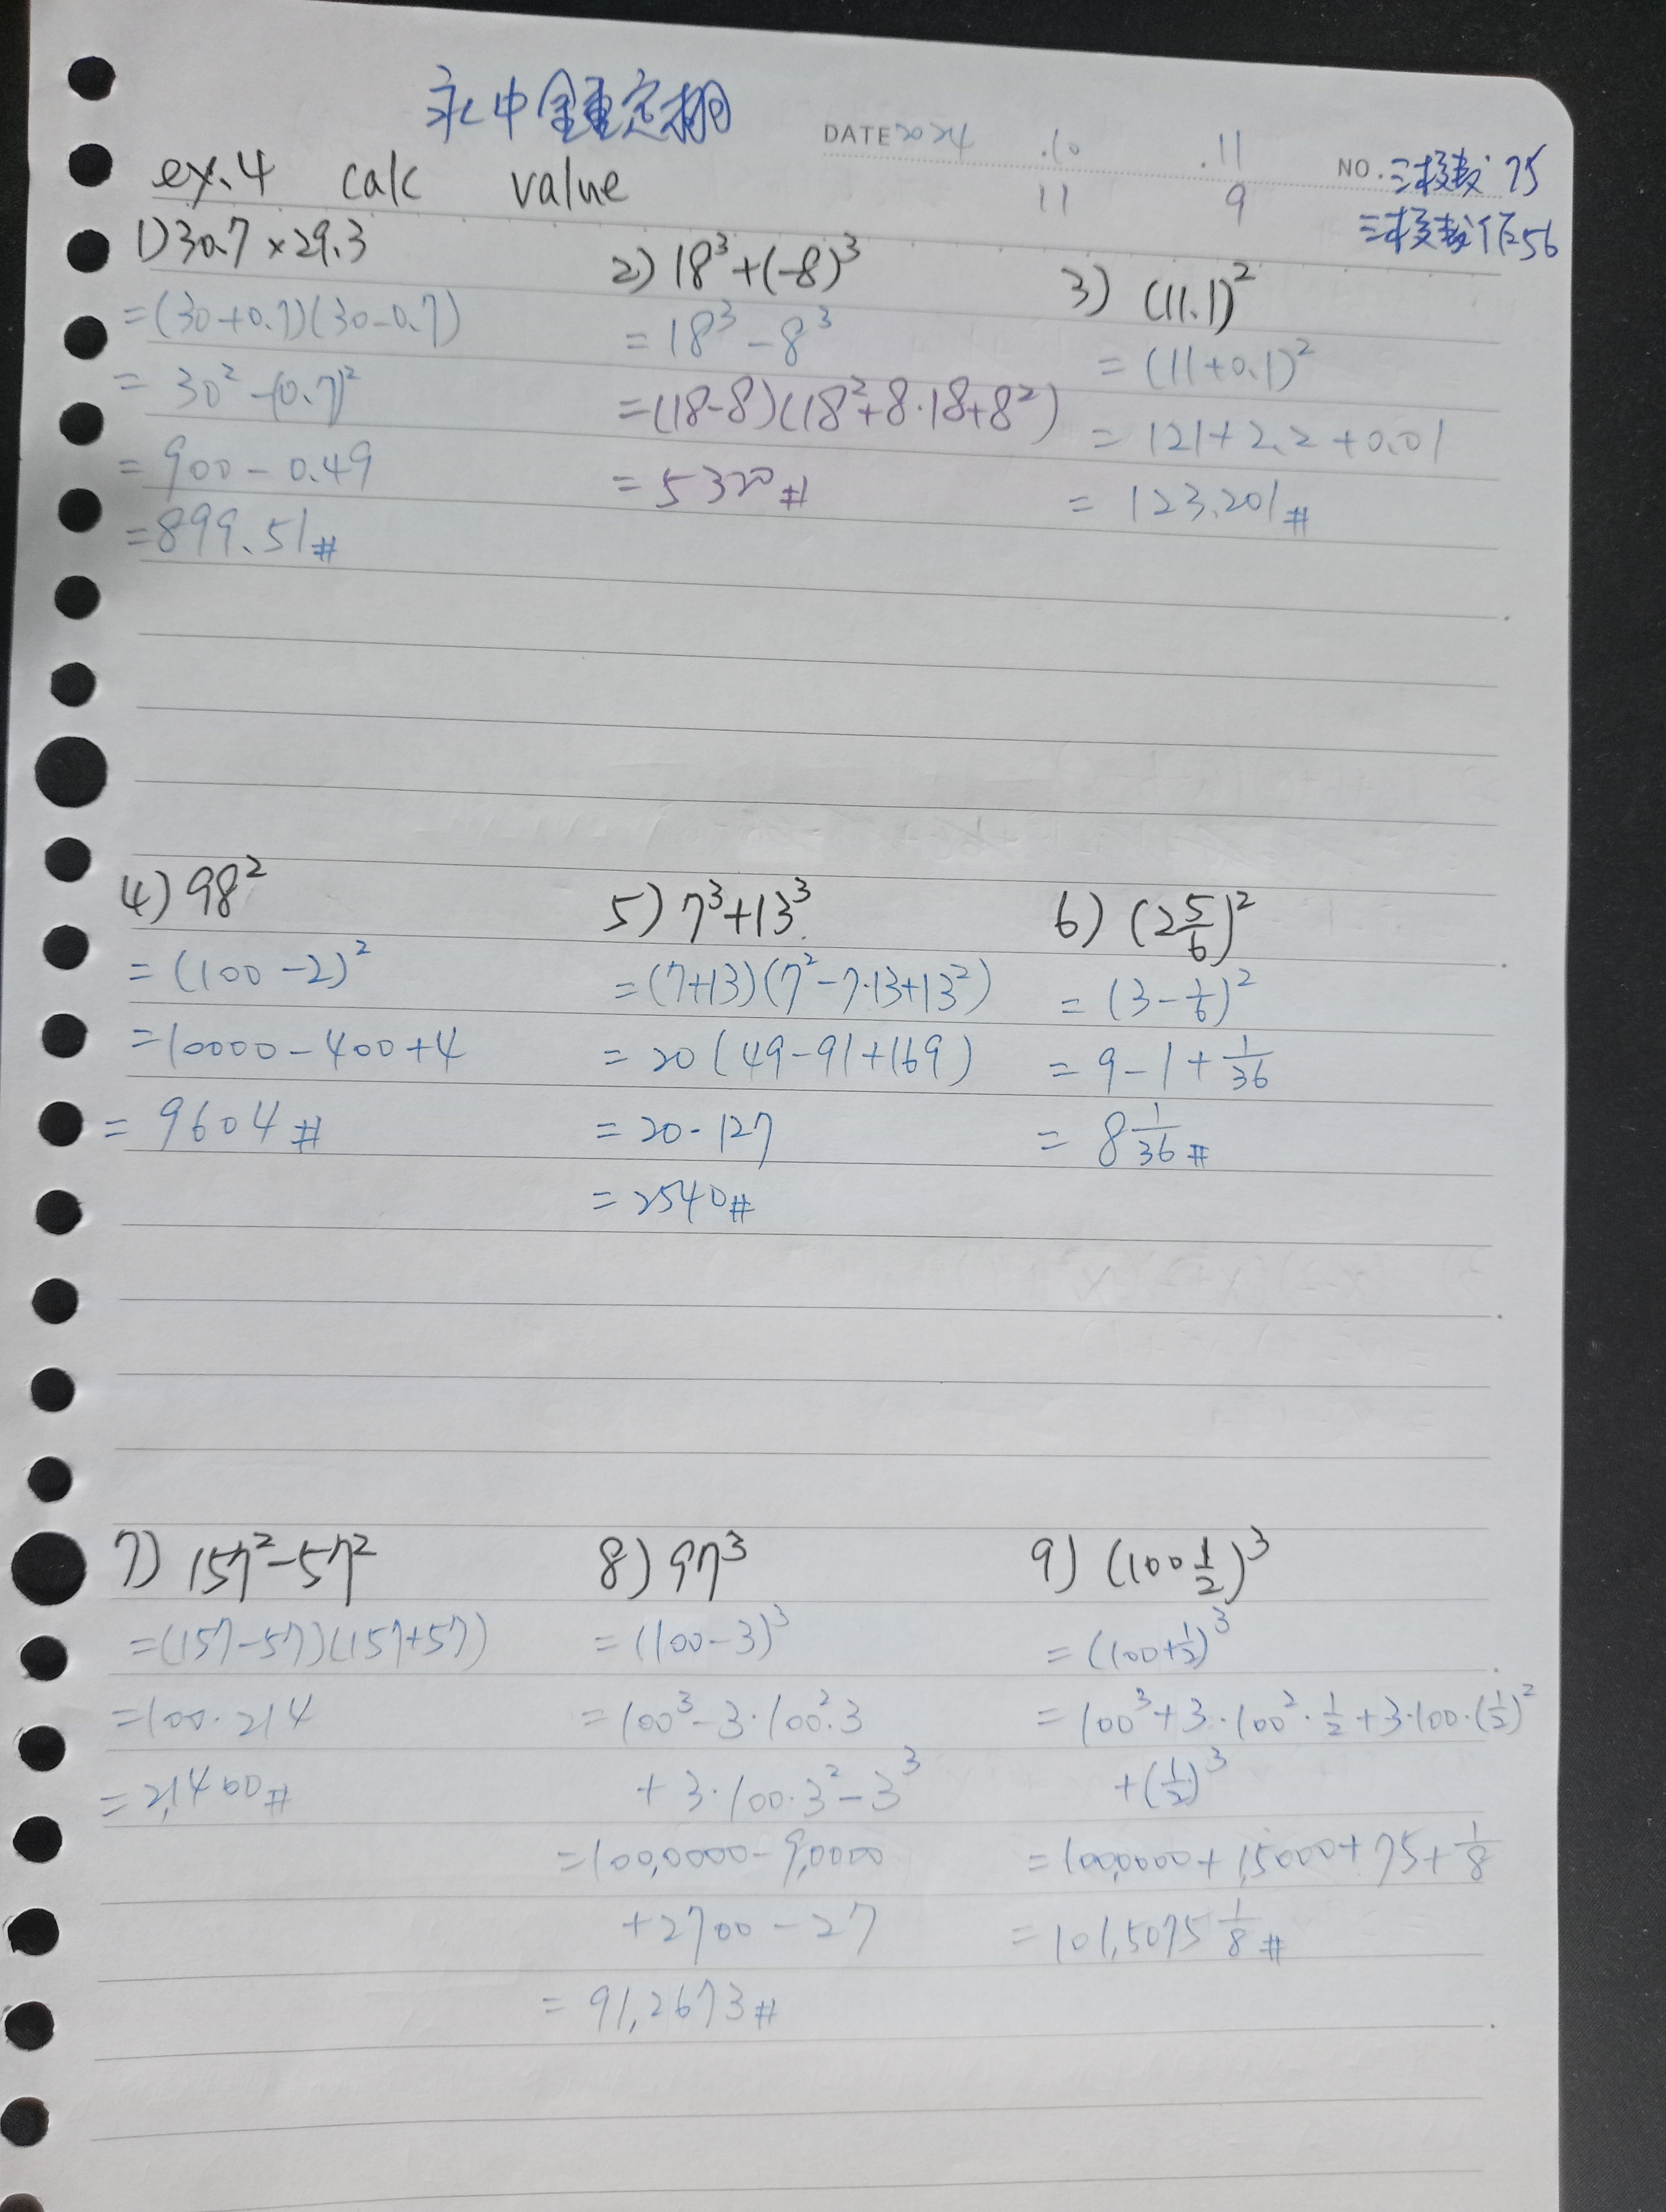 永中鍾定翔
DATE 2024 .10 .11 NO. 三模数 75
11 9 三模数佰56
ex.4 calc value
1) 30.7×29.3
=(30+0.7)(30-0.7)
= 30²-(0.7)²
= 900-0.49
=899.51#
2) 18³+(-8)³
= 18³-8³
=(18-8)(18²+8·18+8²)
= 5320#
3) (11.1)²
= (11+0.1)²
= 121+2.2+0.01
= 123.201#
4) 98²
= (100-2)²
=10000-400+4
= 9604#
5) 7³+13³
=(7+13)(7²-7·13+13²)
= 20(49-91+169)
= 20·127
= 2540#
6) (2 5/6)²
= (3-1/6)²
= 9-1+1/36
= 8 1/36#
7) 157²-57²
=(157-57)(157+57)
=100·214
=2,1400#
8) 97³
= (100-3)³
=100³-3·100²·3
+3·100·3²-3³
=100,0000-9,0000
+2700-27
= 91,2673#
9) (100 1/2)³
= (100+1/2)³
= 100³+3·100²·1/2+3·100·(1/2)²
+(1/2)³
=100,0000+1,5000+75+1/8
=101,5075 1/8#